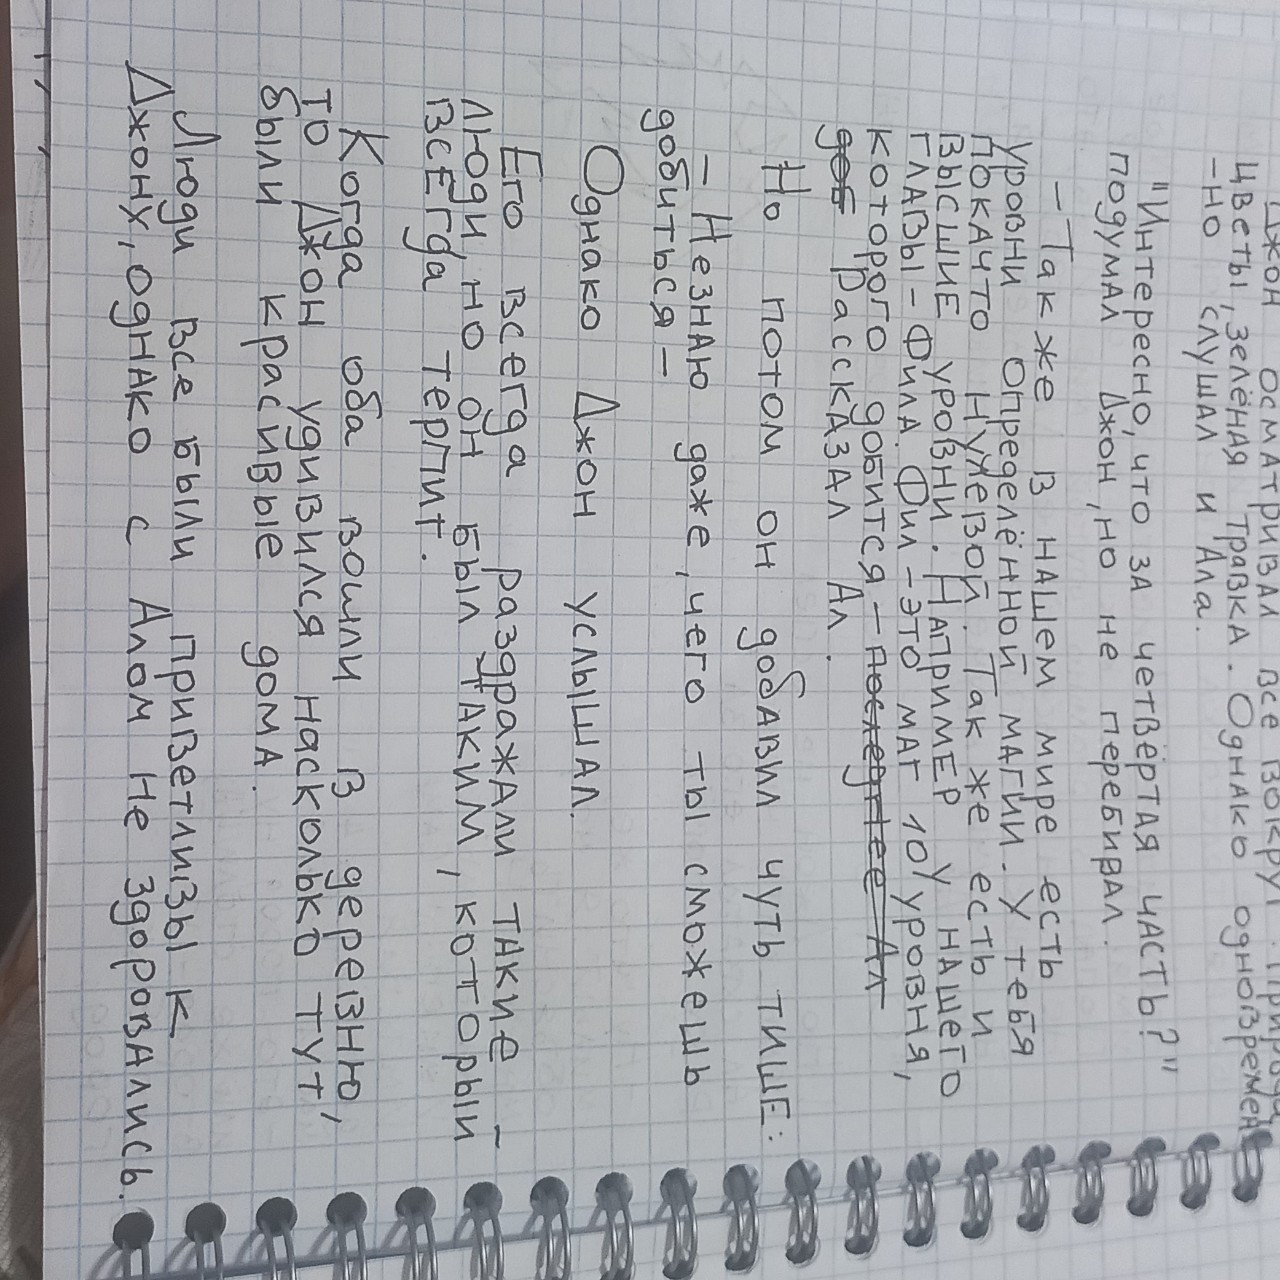 Джон осматривал все вокруг. Природа
цветы, зелёная травка. Однако одновремен
-но слушал и Ала.
"Интересно, что за четвёртая часть?"
подумал Джон, но не перебивал.
- Так же в нашем мире есть
уровни определённой магии. У тебя
покачто нулевой. Так же есть и
высшие уровни. Например у нашего
главы - Фила. Фил - это маг 10 уровня,
которого добится - последнее Ал
доб Рассказал Ал.
Но потом он добавил чуть тише:
- Незнаю даже, чего ты сможешь
добиться -
Однако Джон услышал.
Его всегда раздражали такие -
люди, но он был таким, который
всегда терпит.
Когда оба вошли в деревню,
то Джон удивился насколько тут,
были красивые дома.
Люди все были приветливы к
Джону, однако с Алом не здоровались.